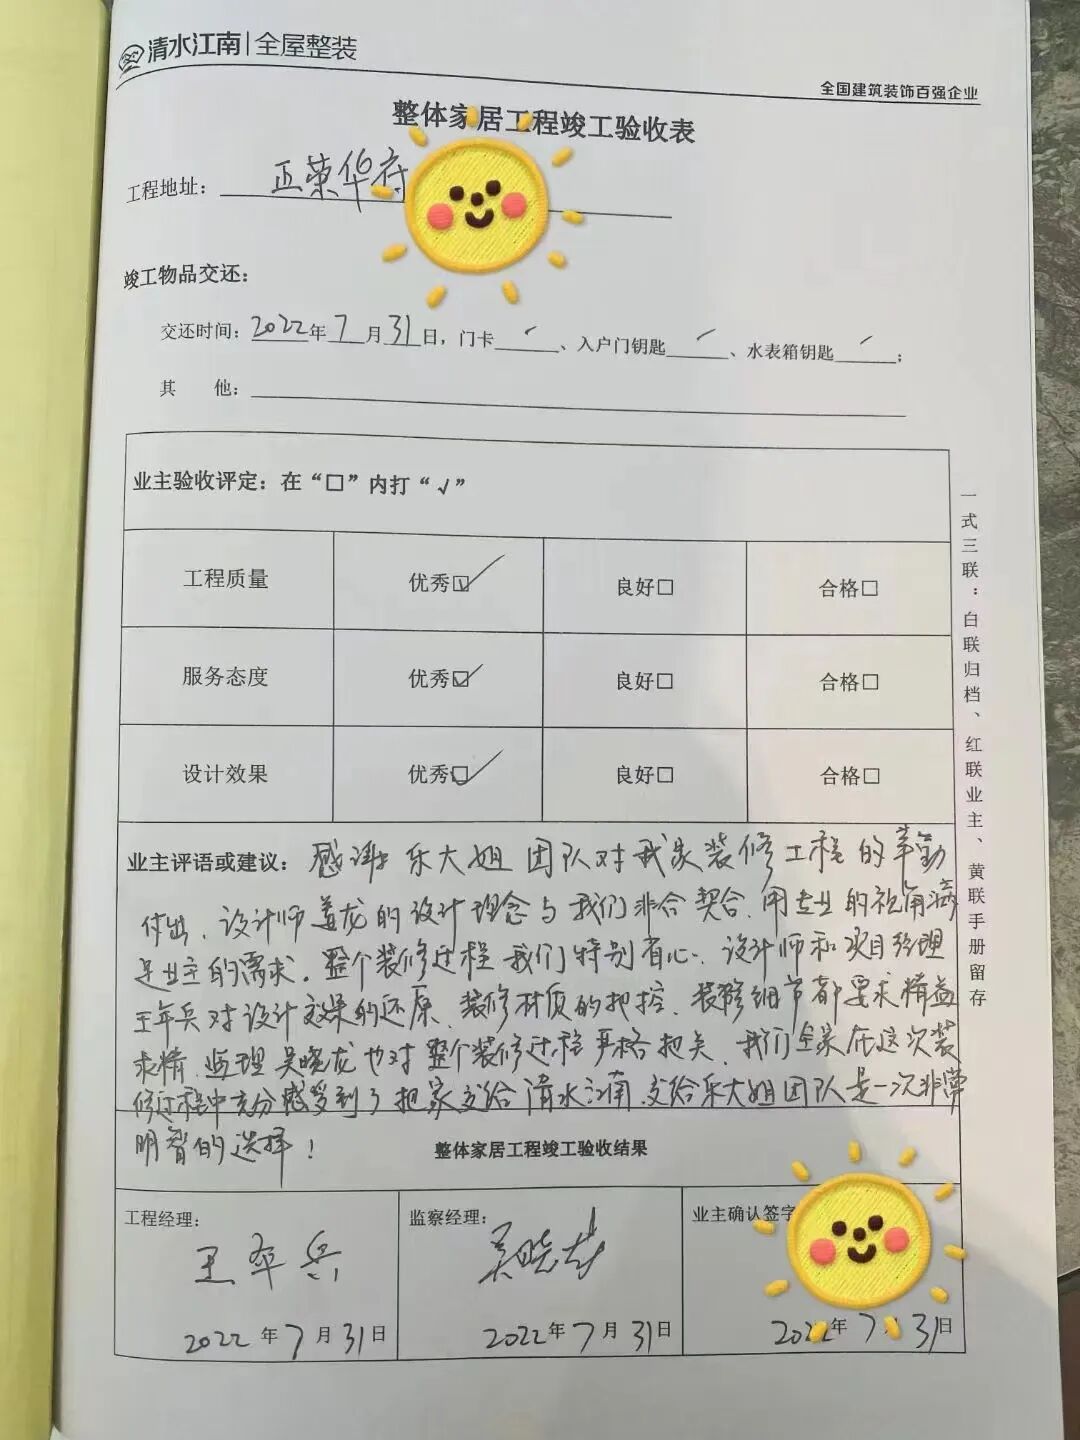 清水江南|全屋整装
全国建筑装饰百强企业
整体家居工程竣工验收表
工程地址： 正荣华府
竣工物品交还：
交还时间：2022年7月31日，门卡✓、入户门钥匙✓、水表箱钥匙✓；
其 他：
业主验收评定：在“□”内打“√”
工程质量 优秀☑ 良好□ 合格□
服务态度 优秀☑ 良好□ 合格□
设计效果 优秀☑ 良好□ 合格□
业主评语或建议：感谢乐大姐团队对我家装修工程的辛勤
付出、设计师姜龙的设计理念与我们非合契合、用专业的视角满
足业主的需求。整个装修过程我们特别省心、设计师和项目经理
王年兵对设计效果的还原、装修材质的把控、装修细节都要求精益
求精、监理吴晓龙也对整个装修过程严格把关、我们全家在这次装
修过程中充分感受到了把家交给清水江南、交给乐大姐团队是一次非常
明智的选择！
整体家居工程竣工验收结果
工程经理： 监察经理： 业主确认签字
王年兵 吴晓龙
2022年7月31日 2022年7月31日 2022年7月31日
一式三联：白联归档、红联业主、黄联手册留存